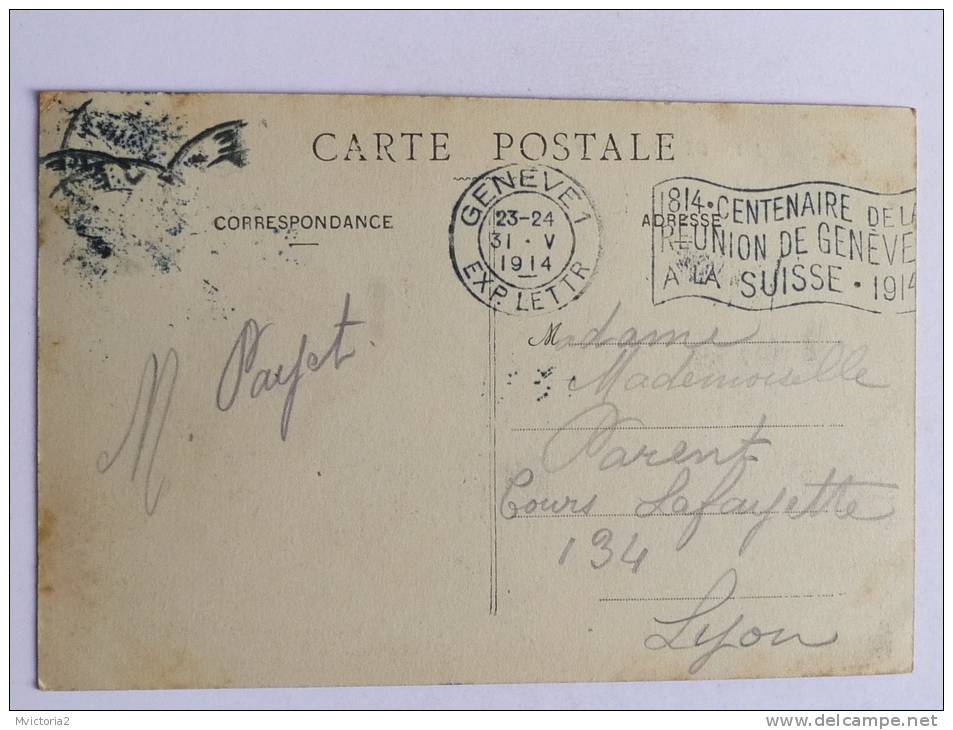 CARTE POSTALE
CORRESPONDANCE
ADRESSE
GENEVE 1
23-24
31 · V
1914
EXP. LETTR
1814 · CENTENAIRE DE LA
RÉUNION DE GENÈVE
A LA SUISSE · 1914
M. Payet.
Madame
Mademoiselle
Parent
Cours Lafayette
134
Lyon
Mvictoria2
www.delcampe.net